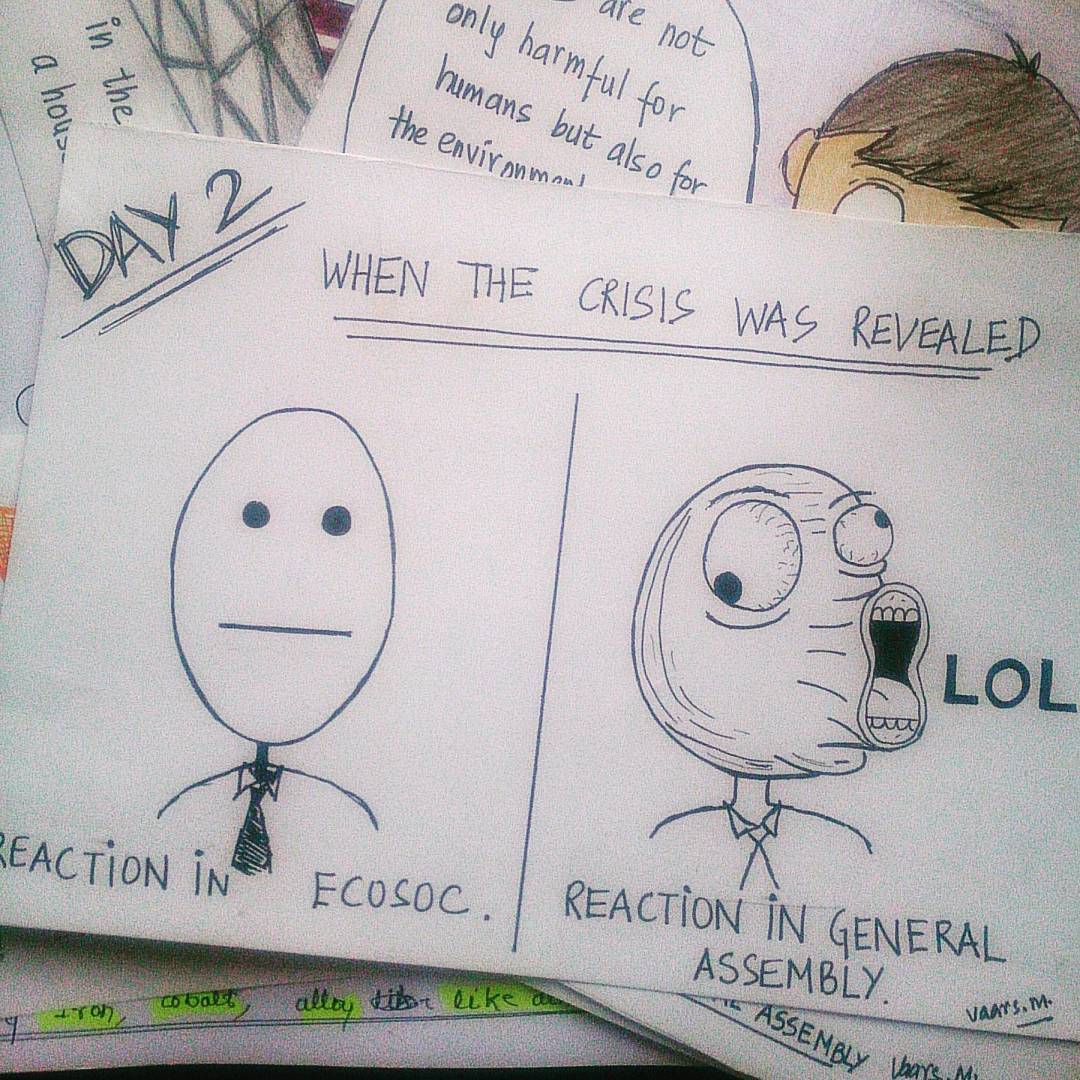 in the
a hous
are not
only harmful for
humans but also for
the environment
DAY 2
WHEN THE CRISIS WAS REVEALED
LOL
REACTION IN ECOSOC.
REACTION IN GENERAL
ASSEMBLY.
vaars.m.
iron, cobalt, alloy like
ASSEMBLY Vaars.M.